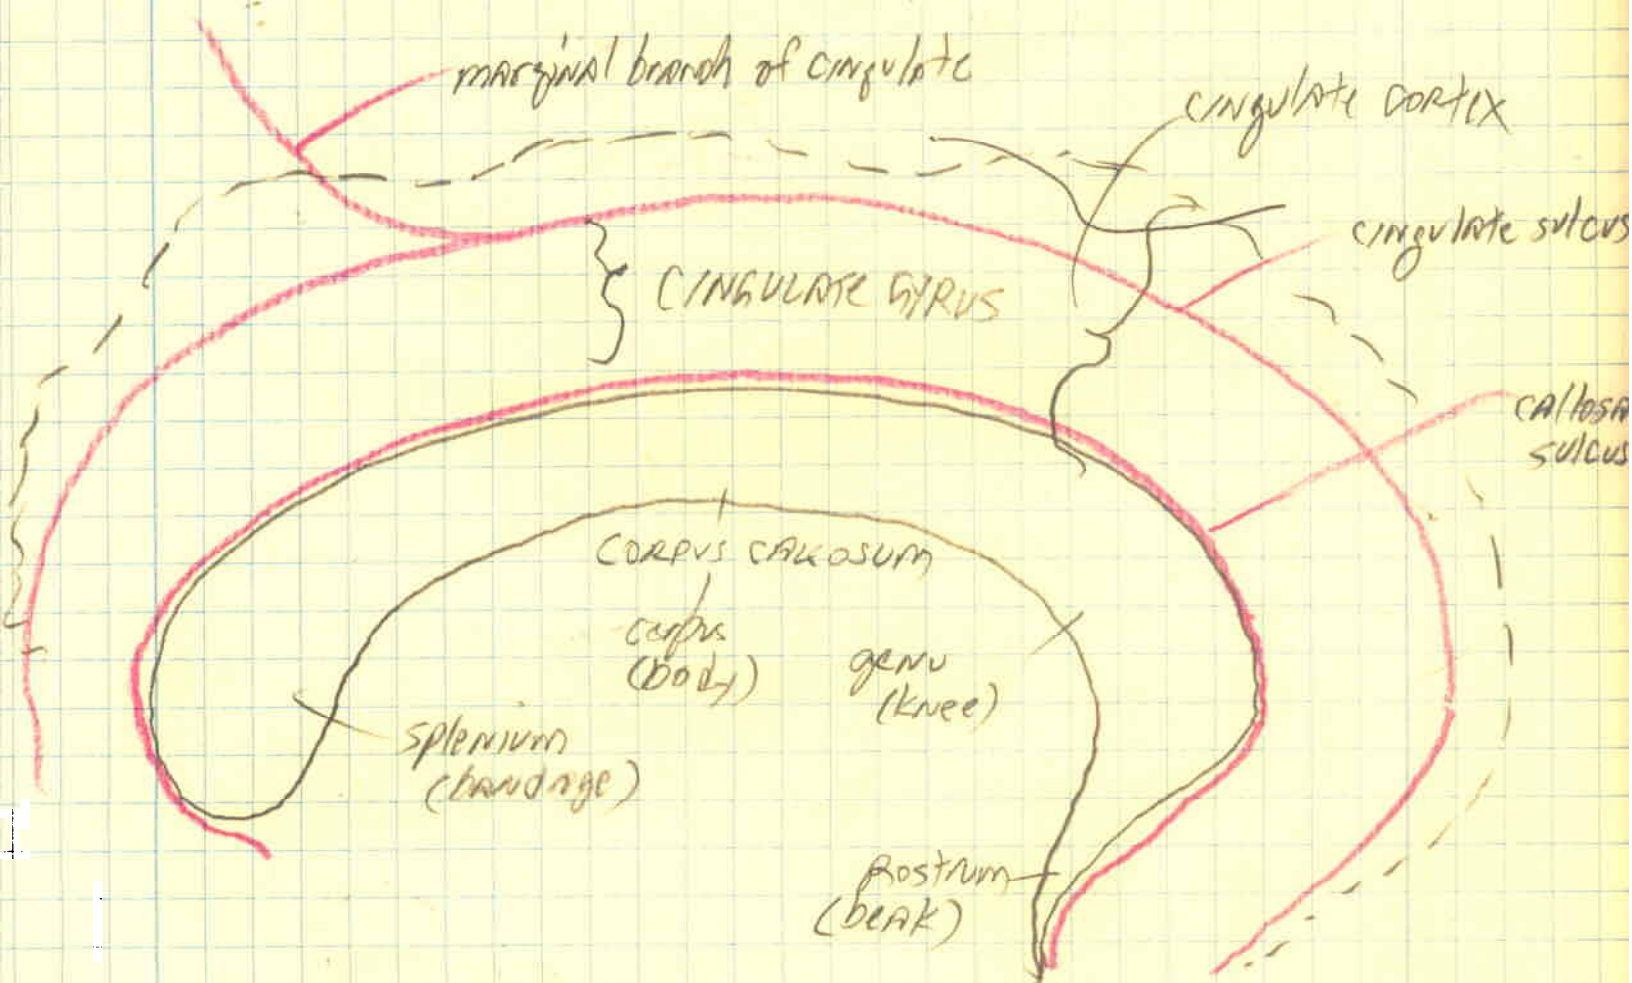 marginal branch of cingulate
cingulate cortex
cingulate sulcus
CINGULATE GYRUS
callosa
sulcus
CORPUS CALLOSUM
corpus
(body)
genu
(knee)
splenium
(bandage)
Rostrum
(beak)